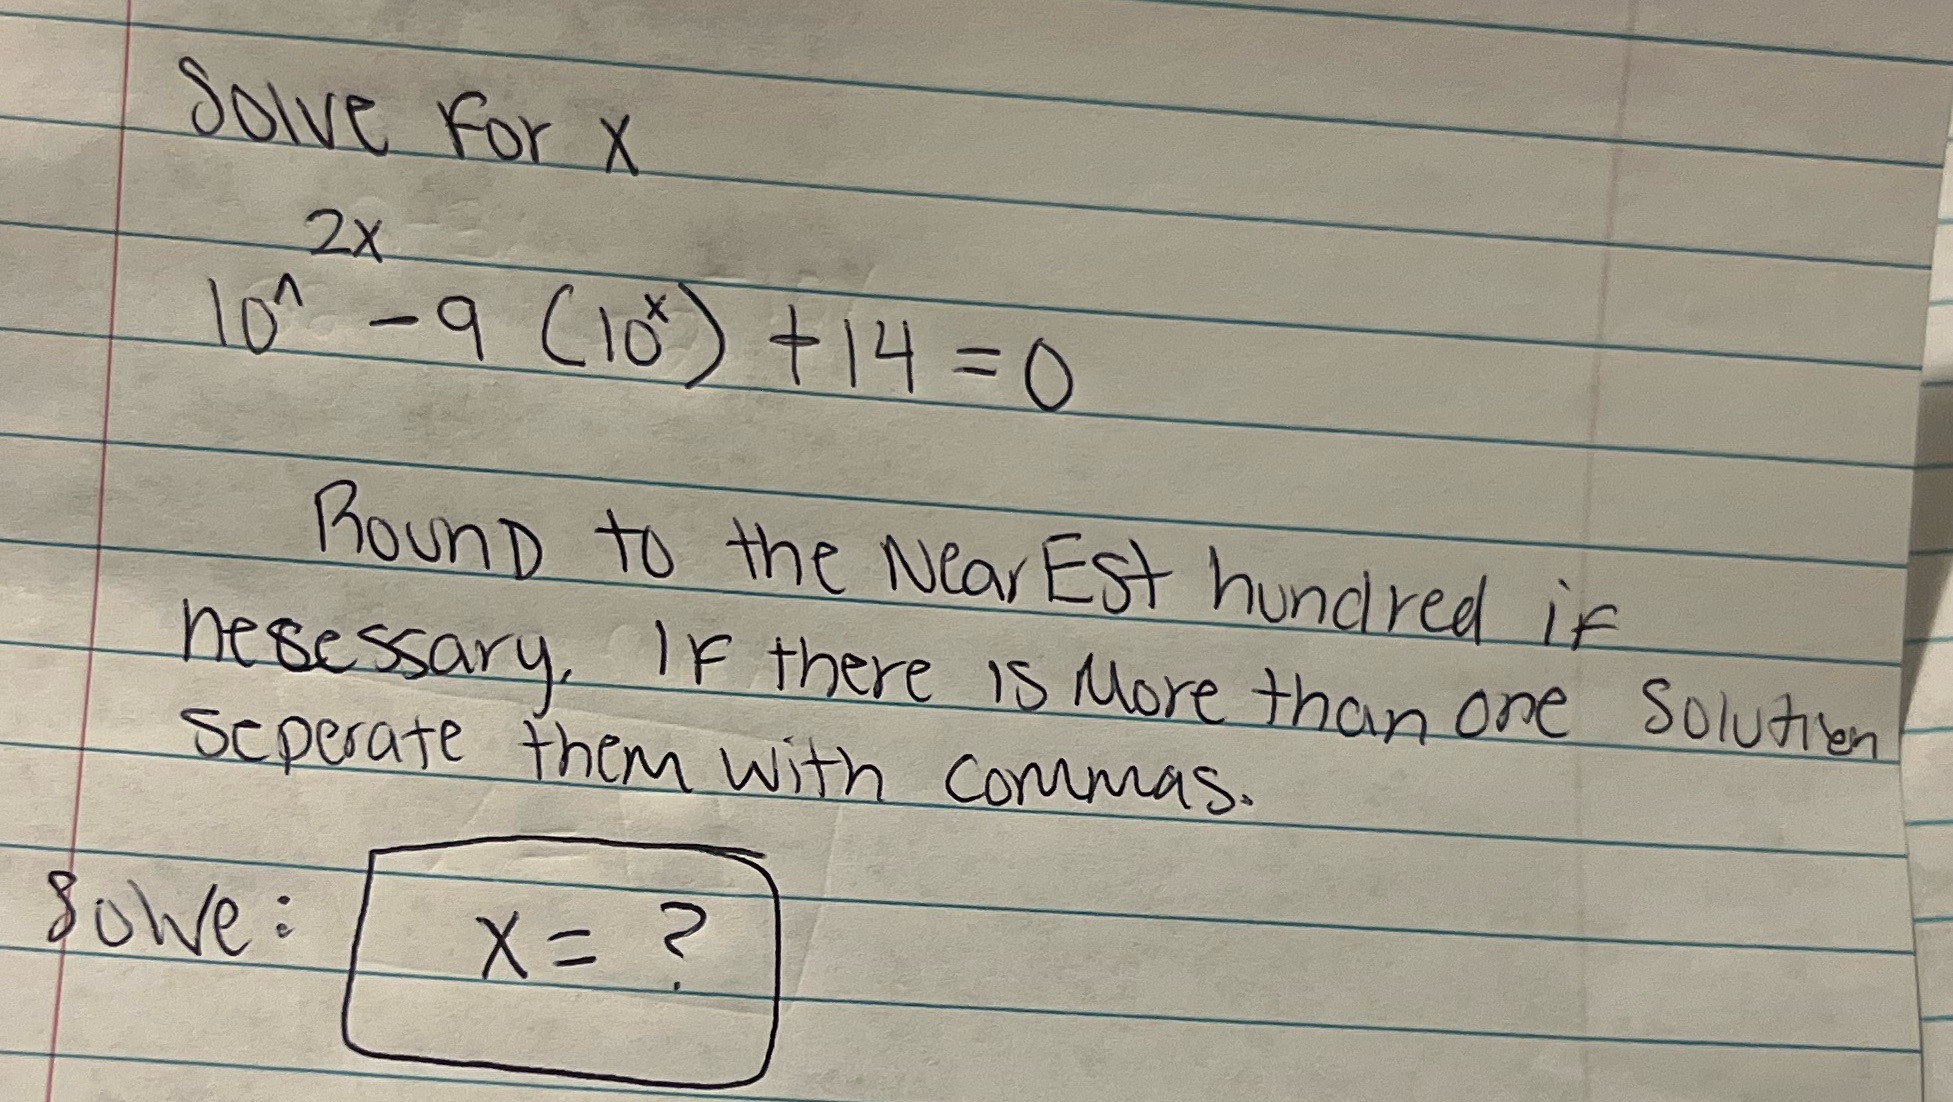 Solve For x
10^2x - 9 (10^x) + 14 = 0
RounD to the NearEst hundred if
nesessary. IF there is More than one solution
seperate them with commas.
Solve: x = ?